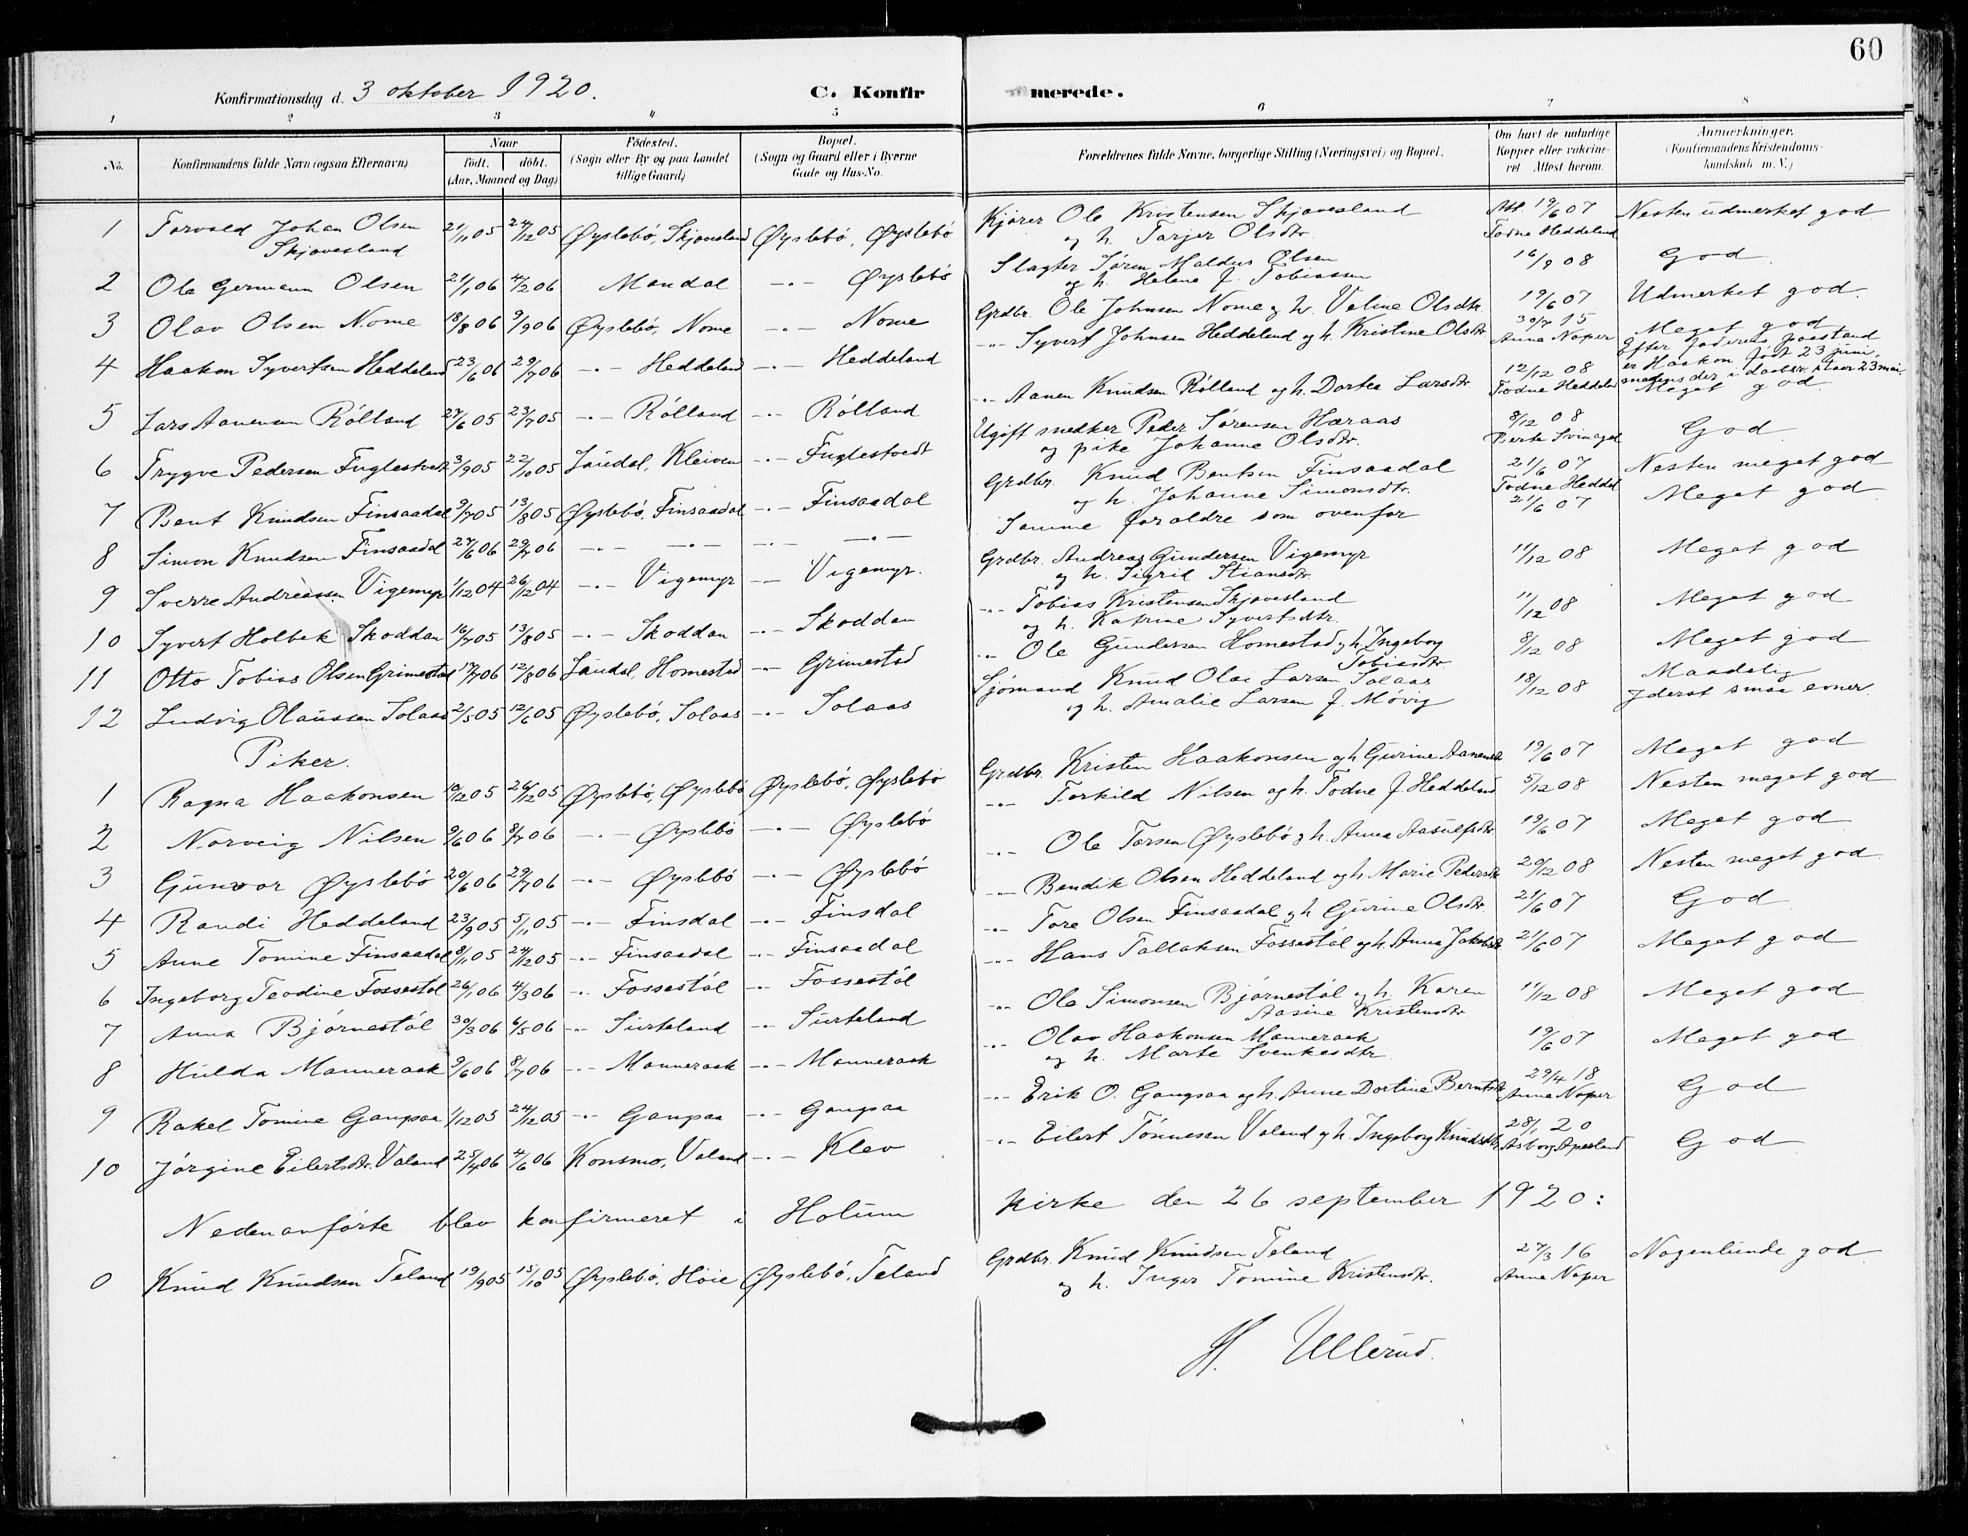 60
Konfirmationsdag d. 3 oktober 1920. C. Konfirmerede.
1 2 3 4 5 6 7 8
No. Konfirmandens fulde Navn (ogsaa Efternavn) Naar født. døbt. (Aar, Maaned og Dag) Fødested. (Sogn eller By og paa Landet tillige Gaard) Bopæl. (Sogn og Gaard eller i Byerne Gade og Hus-No. Forældrenes fulde Navne, borgerlige Stilling (Næringsvei) og Bopæl. Om havt de naturlige Kopper eller vakcineret. Attest herom. Anmærkninger. (Konfirmandens Kristendomskundskab m. V.)
1 Torvald Johan Olsen Skjævesland 21/11 05 24/12 05 Øyslebø, Skjævesland Øyslebø, Øyslebø Kjører Ole Kristensen Skjævesland og h. Tarjer Olsdtr. Att. 19/6 07 Todne Heddeland Nesten udmerket god
2 Ole Germann Olsen 21/1 06 4/2 06 Mandal -"- Øyslebø Slagter Søren Maldus Olsen og h. Helene f. Tobiassen 16/9 08 God
3 Olav Olsen Nome 18/8 06 9/9 06 Øyslebø, Nome -"- Nome Grdbr. Ole Johnsen Nome og h. Veline Olsdtr. 19/6 07 Udmerket god.
4 Haakon Syvertsen Heddeland 23/6 06 29/7 06 -"- Heddeland -"- Heddeland -"- Syvert Johnsen Heddeland og h. Kristine Olsdtr. 30/7 15 Anna Noper Meget god Efter faderens paastand er Haakon født 23 juni, medens der i daabsr. staar 23 mai
5 Lars Aanensen Rølland 27/6 05 23/7 05 -"- Rølland -"- Rølland -"- Aanen Knudsen Rølland og h. Dorte Larsdtr. 12/12 08 Todne Heddeland Meget god
6 Trygve Pedersen Fuglestvedt 3/9 05 22/10 05 Laudal, Kleiven -"- Fuglestvedt Ugift snedker Peder Sørensen Haraas og pike Johanne Olsdtr. 8/12 08 Berte Svinaged God
7 Bent Knudsen Finsaadal 9/7 05 13/8 05 Øyslebø, Finsaadal -"- Finsaadal Grdbr. Knud Bentsen Finsaadal og h. Johanne Simonsdtr. 21/6 07 Todne Heddel. Nesten meget god
8 Simon Knudsen Finsaadal 27/6 06 29/7 06 -"- -"- -"- -"- Samme foraldre som ovenfor 21/6 07 Meget god
9 Sverre Andreassen Vigemyr 1/12 04 26/12 04 -"- Vigemyr -"- Vigemyr. Grdbr. Andreas Gundersen Vigemyr og h. Sigrid Stiansdtr. 11/12 08 Meget god
10 Syvert Holbek Skoddan 16/7 05 13/8 05 -"- Skoddan -"- Skoddan -"- Tobias Kristensen Skjævesland og h. Katrine Syvertsdtr. 11/12 08 Meget god
11 Otto Tobias Olsen Grimestad 17/7 06 12/8 06 Laudal, Homestad -"- Grimestad -"- Ole Gundersen Homestad og h. Ingeborg Tobiasdtr. 8/12 08 Meget god
12 Ludvig Olaussen Solaas 2/5 05 12/6 05 Øyslebø, Solaas -"- Solaas Sjømand Knud Olai Larsen Solaas og h. Amalie Larsen f. Møvig 18/12 08 Maadelig Yderst smaa evner.
Piker.
1 Ragna Haakonsen 10/12 05 26/12 05 Øyslebø, Øyslebø Øyslebø, Øyslebø Grdbr. Kristen Haakonsen og h. Gurine Aanensdtr. 19/6 07 Meget god
2 Norveig Nilsen 9/6 06 8/7 06 -"- Øyslebø -"- Øyslebø -"- Torkild Nilsen og h. Todne f. Heddeland 5/12 08 Nesten meget god
3 Gunvor Øyslebø 20/6 06 29/7 06 -"- Øyslebø -"- Øyslebø -"- Ole Torsen Øyslebø og h. Anna Aasulfsdtr. 19/6 07 Meget god
4 Randi Heddeland 23/9 05 5/11 05 -"- Finsdal -"- Finsdal -"- Bendik Olsen Heddeland og h. Marie Pedersdtr. 29/12 08 Nesten meget god.
5 Anne Tomine Finsaadal 8/11 05 24/12 05 -"- Finsaadal -"- Finsaadal -"- Tore Olsen Finsaadal og h. Gurine Olsdtr. 21/6 07 God
6 Ingeborg Teodine Fossestøl 26/1 06 4/3 06 -"- Fossestøl -"- Fossestøl -"- Hans Tallaksen Fossestøl og h. Anna Jakobsdtr. 21/6 07 Meget god
7 Anna Bjørnestøl 30/3 06 6/5 06 -"- Surteland -"- Surteland -"- Ole Simonsen Bjørnestøl og h. Karen Aasine Kristensdtr. 11/12 08 Meget god
8 Hulda Manneraak 9/6 06 8/7 06 -"- Manneraak -"- Manneraak -"- Olav Haakonsen Manneraak og h. Marte Svenkesdtr. 19/6 07 Meget god
9 Rakel Tomine Gangsaa 1/12 05 24/12 05 -"- Gangsaa -"- Gangsaa -"- Erik O. Gangsaa og h. Anne Dortine Berntsdtr. 29/4 18 Anna Noper God
10 Jørgine Eilertsdtr. Valand 25/4 06 4/6 06 Konsmo, Valand -"- Klev -"- Eilert Tønnesen Valand og h. Ingeborg Knudsdtr. 28/1 20 Asborg Apesland God
Nedenanførte blev konfirmeret i Holum kirke den 26 september 1920:
0 Knud Knudsen Teland 19/9 05 15/10 05 Øyslebø, Høie Øyslebø, Teland Grdbr. Knud Knudsen Teland og h. Inger Tomine Kristensdtr. 27/3 16 Anna Noper Nogenlunde god
H. Ullerud.